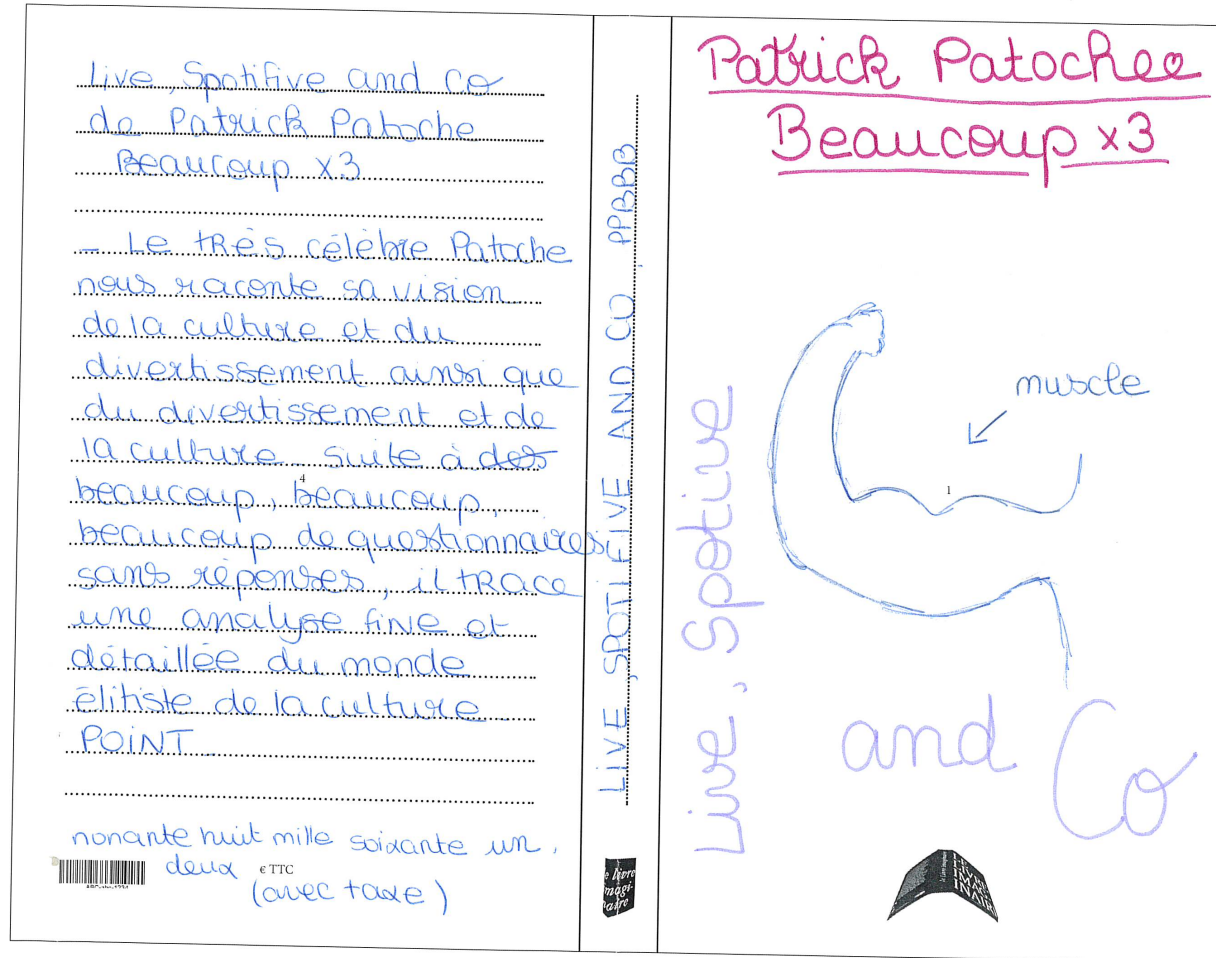 Live, Spotifive and Co
de Patrick Patoche
Beaucoup x3
- Le tRès célèbre Patoche
nous raconte sa vision
de la culture et du
divertissement ainsi que
du divertissement et de
la culture. Suite à des
beaucoup, beaucoup,
4
beaucoup de questionnaires
sans réponses, il tRace
une analyse fine et
détaillée du monde
élitiste de la culture
POINT
nonante huit mille soixante un,
deux € TTC
(avec taxe)
LIVE, SPOTIFIVE AND CO PPBBB
le livre
imagi-
naire
Patrick Patochee
Beaucoup x3
muscle
1
Live, Spotive
and Co